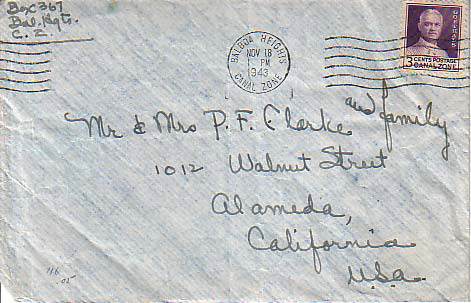 Box 367
Bal. Hgts.
C. Z.
BALBOA HEIGHTS
NOV 18
1 PM
1943
CANAL ZONE
GOETHALS
3 CENTS POSTAGE
CANAL ZONE
Mr & Mrs P. F. Clarke and family
1012 Walnut Street
Alameda,
California
U.S.a.
116
.05